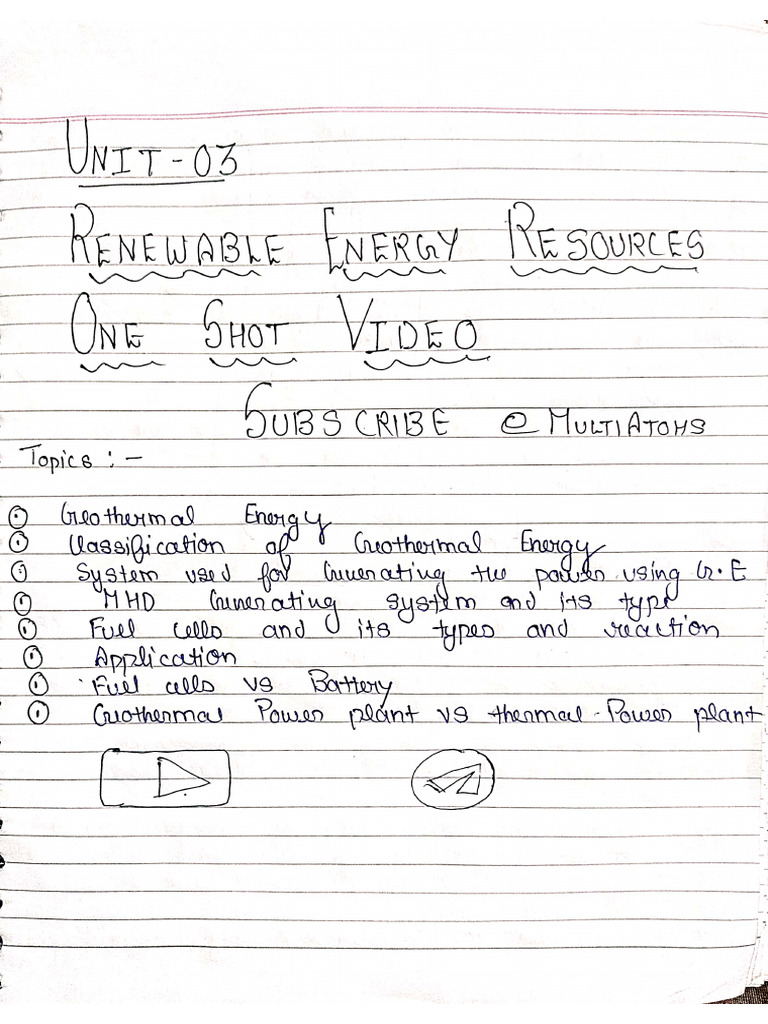 UNIT-03
RENEWABLE ENERGY RESOURCES
ONE SHOT VIDEO
SUBSCRIBE @ MULTIATOMS
Topics :-
Geothermal Energy
Classification of Geothermal Energy
System used for Generating the power using G.E
MHD Generating system and its type
Fuel cells and its types and reaction
Application
Fuel cells vs Battery
Geothermal Power plant vs thermal-Power plant